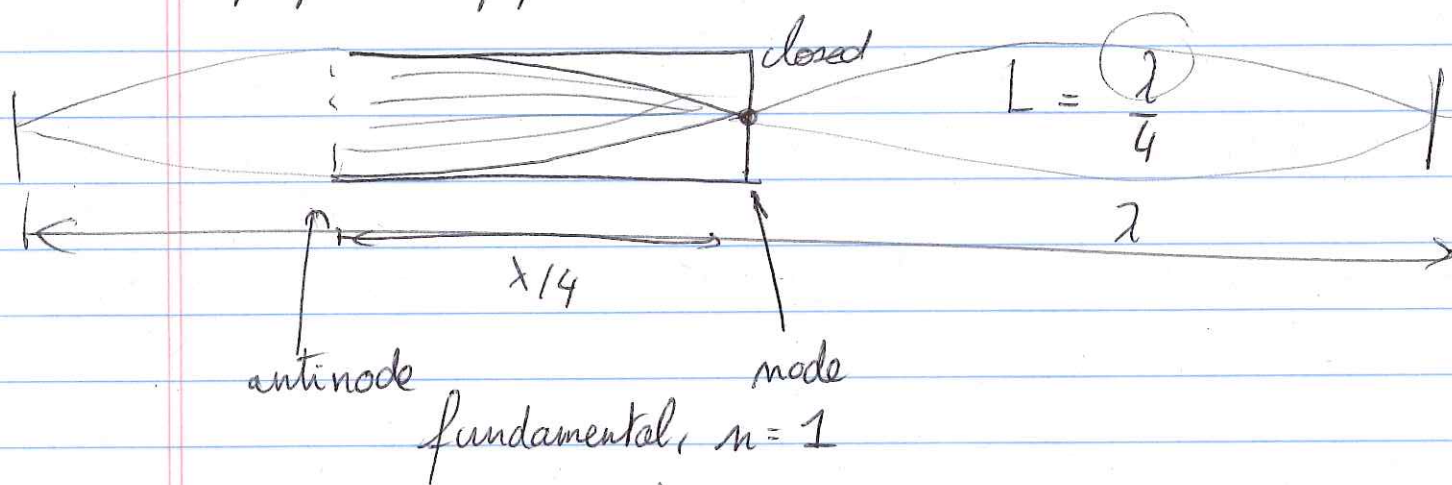 closed
L = λ/4
λ
λ/4
antinode
node
fundamental, n = 1